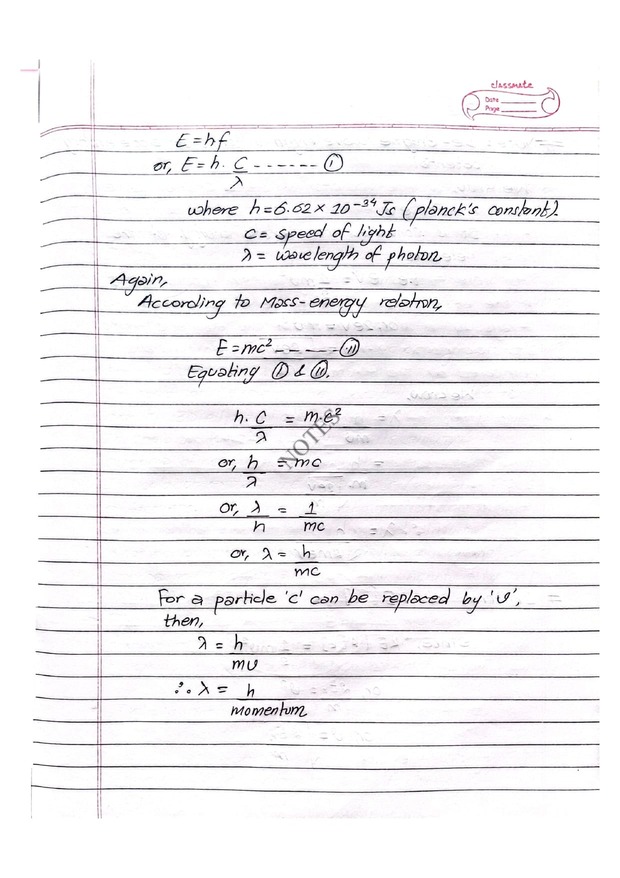 classmate
Date
Page
E = hf
or, E = h. C/λ ------ ⓘ
where h = 6.62 × 10⁻³⁴ Js (planck's constant).
C = speed of light
λ = wavelength of photon
Again,
According to Mass-energy relation,
E = mc² ------ ⓘⓘ
Equating ⓘ & ⓘⓘ.
h. C/λ = m.c²
NOTES
or, h/λ = mc
or, λ/h = 1/mc
or, λ = h/mc
For a particle 'c' can be replaced by 'v',
then,
λ = h/mv
∴ λ = h/momentum